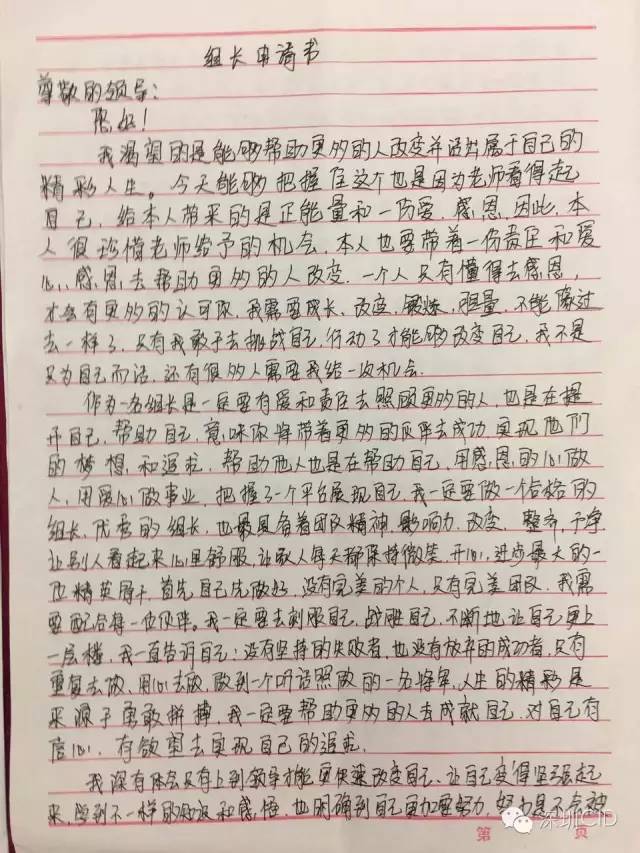 组长申请书
尊敬的领导:
您好!
我渴望的是能够帮助更多的人改变并活出属于自己的
精彩人生。今天能够把握住这个也是因为老师看得起
自己,给本人带来的是正能量和一份爱.感恩.因此,本
人很珍惜老师给予的机会.本人也要带着一份责任和爱
心、感恩去帮助更多的人改变.一个人只有懂得去感恩,
才会有更多的认可你.我需要成长、改变、锻炼、胆量.不能像过
去一样了.只有我敢于去挑战自己,行动了才能够改变自己,我不是
只为自己而活.还有很多人需要我给一次机会.
作为一名组长是一定要有爱和责任去照顾更多的人,也是在提
升自己,帮助自己,意味你将带着更多的伙伴去成功.实现他们
的梦想.和追求.帮助他人也是在帮助自己,用感恩的心做
人,用爱心做事业.把握了一个平台展现自己.我一定要做一个合格的
组长,优秀的组长,也最具备着团队精神.影响力.改变.整齐,干净
让别人看起来心里舒服,让家人每天都保持微笑.开心,进步最大的一
位精英骨干,首先自己先做好.没有完美的个人,只有完美团队.我需
要配合每一位伙伴。我一定要去剋服自己,战胜自己,不断地让自己更上
一层楼,我一直告诉自己:没有坚持的失败者,也没有放弃的成功者,只有
重复去做,用心去做,做到一个听话照做的一名将军,人生的精彩是
来源于勇敢拼搏,我一定要帮助更多的人去成就自己,对自己有
信心,有欲望去实现自己的追求.
我深有体会只有上到领导才能更快速改变自己、让自己变得坚强起
来,学到不一样的知识和感悟.也明确到自己更加要努力,努力是不会被
第 页
深圳CID